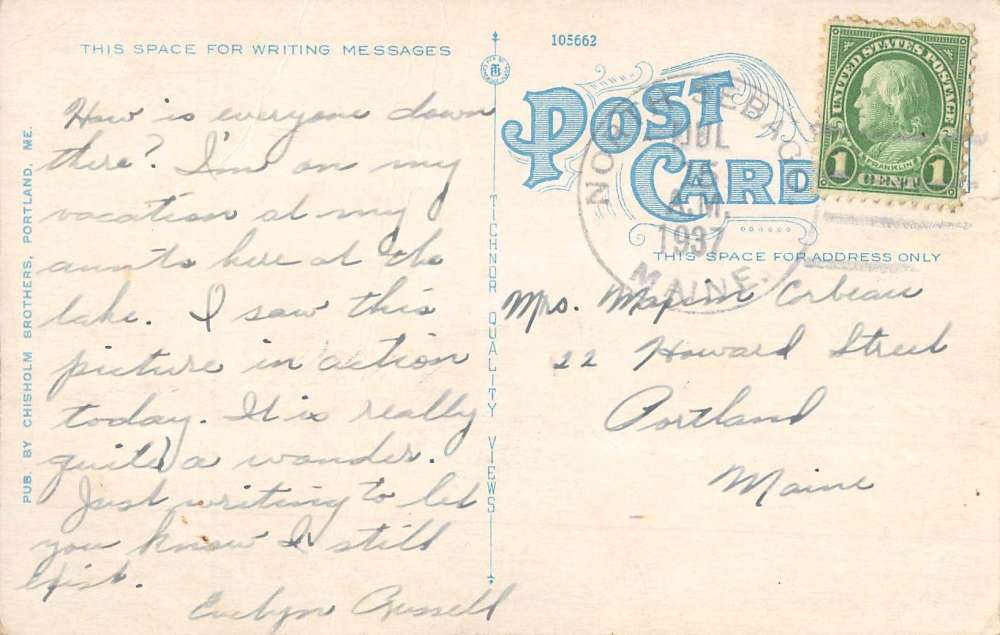 THIS SPACE FOR WRITING MESSAGES
How is everyone down
there? I'm on my
vacation at my
aunts here at the
lake. I saw this
picture in action
today. It is really
quite a wonder.
Just writing to let
you know I still
exist.
Evelyn Russell
PUB. BY CHISHOLM BROTHERS, PORTLAND, ME.
TICHNOR QUALITY VIEWS
105662
POST
CARD
NORTH SEBAGO
JUL
A.M.
1937
MAINE.
UNITED STATES POSTAGE
FRANKLIN
1 CENT 1
THIS SPACE FOR ADDRESS ONLY
Mrs. Corbeau
22 Howard Street
Portland
Maine